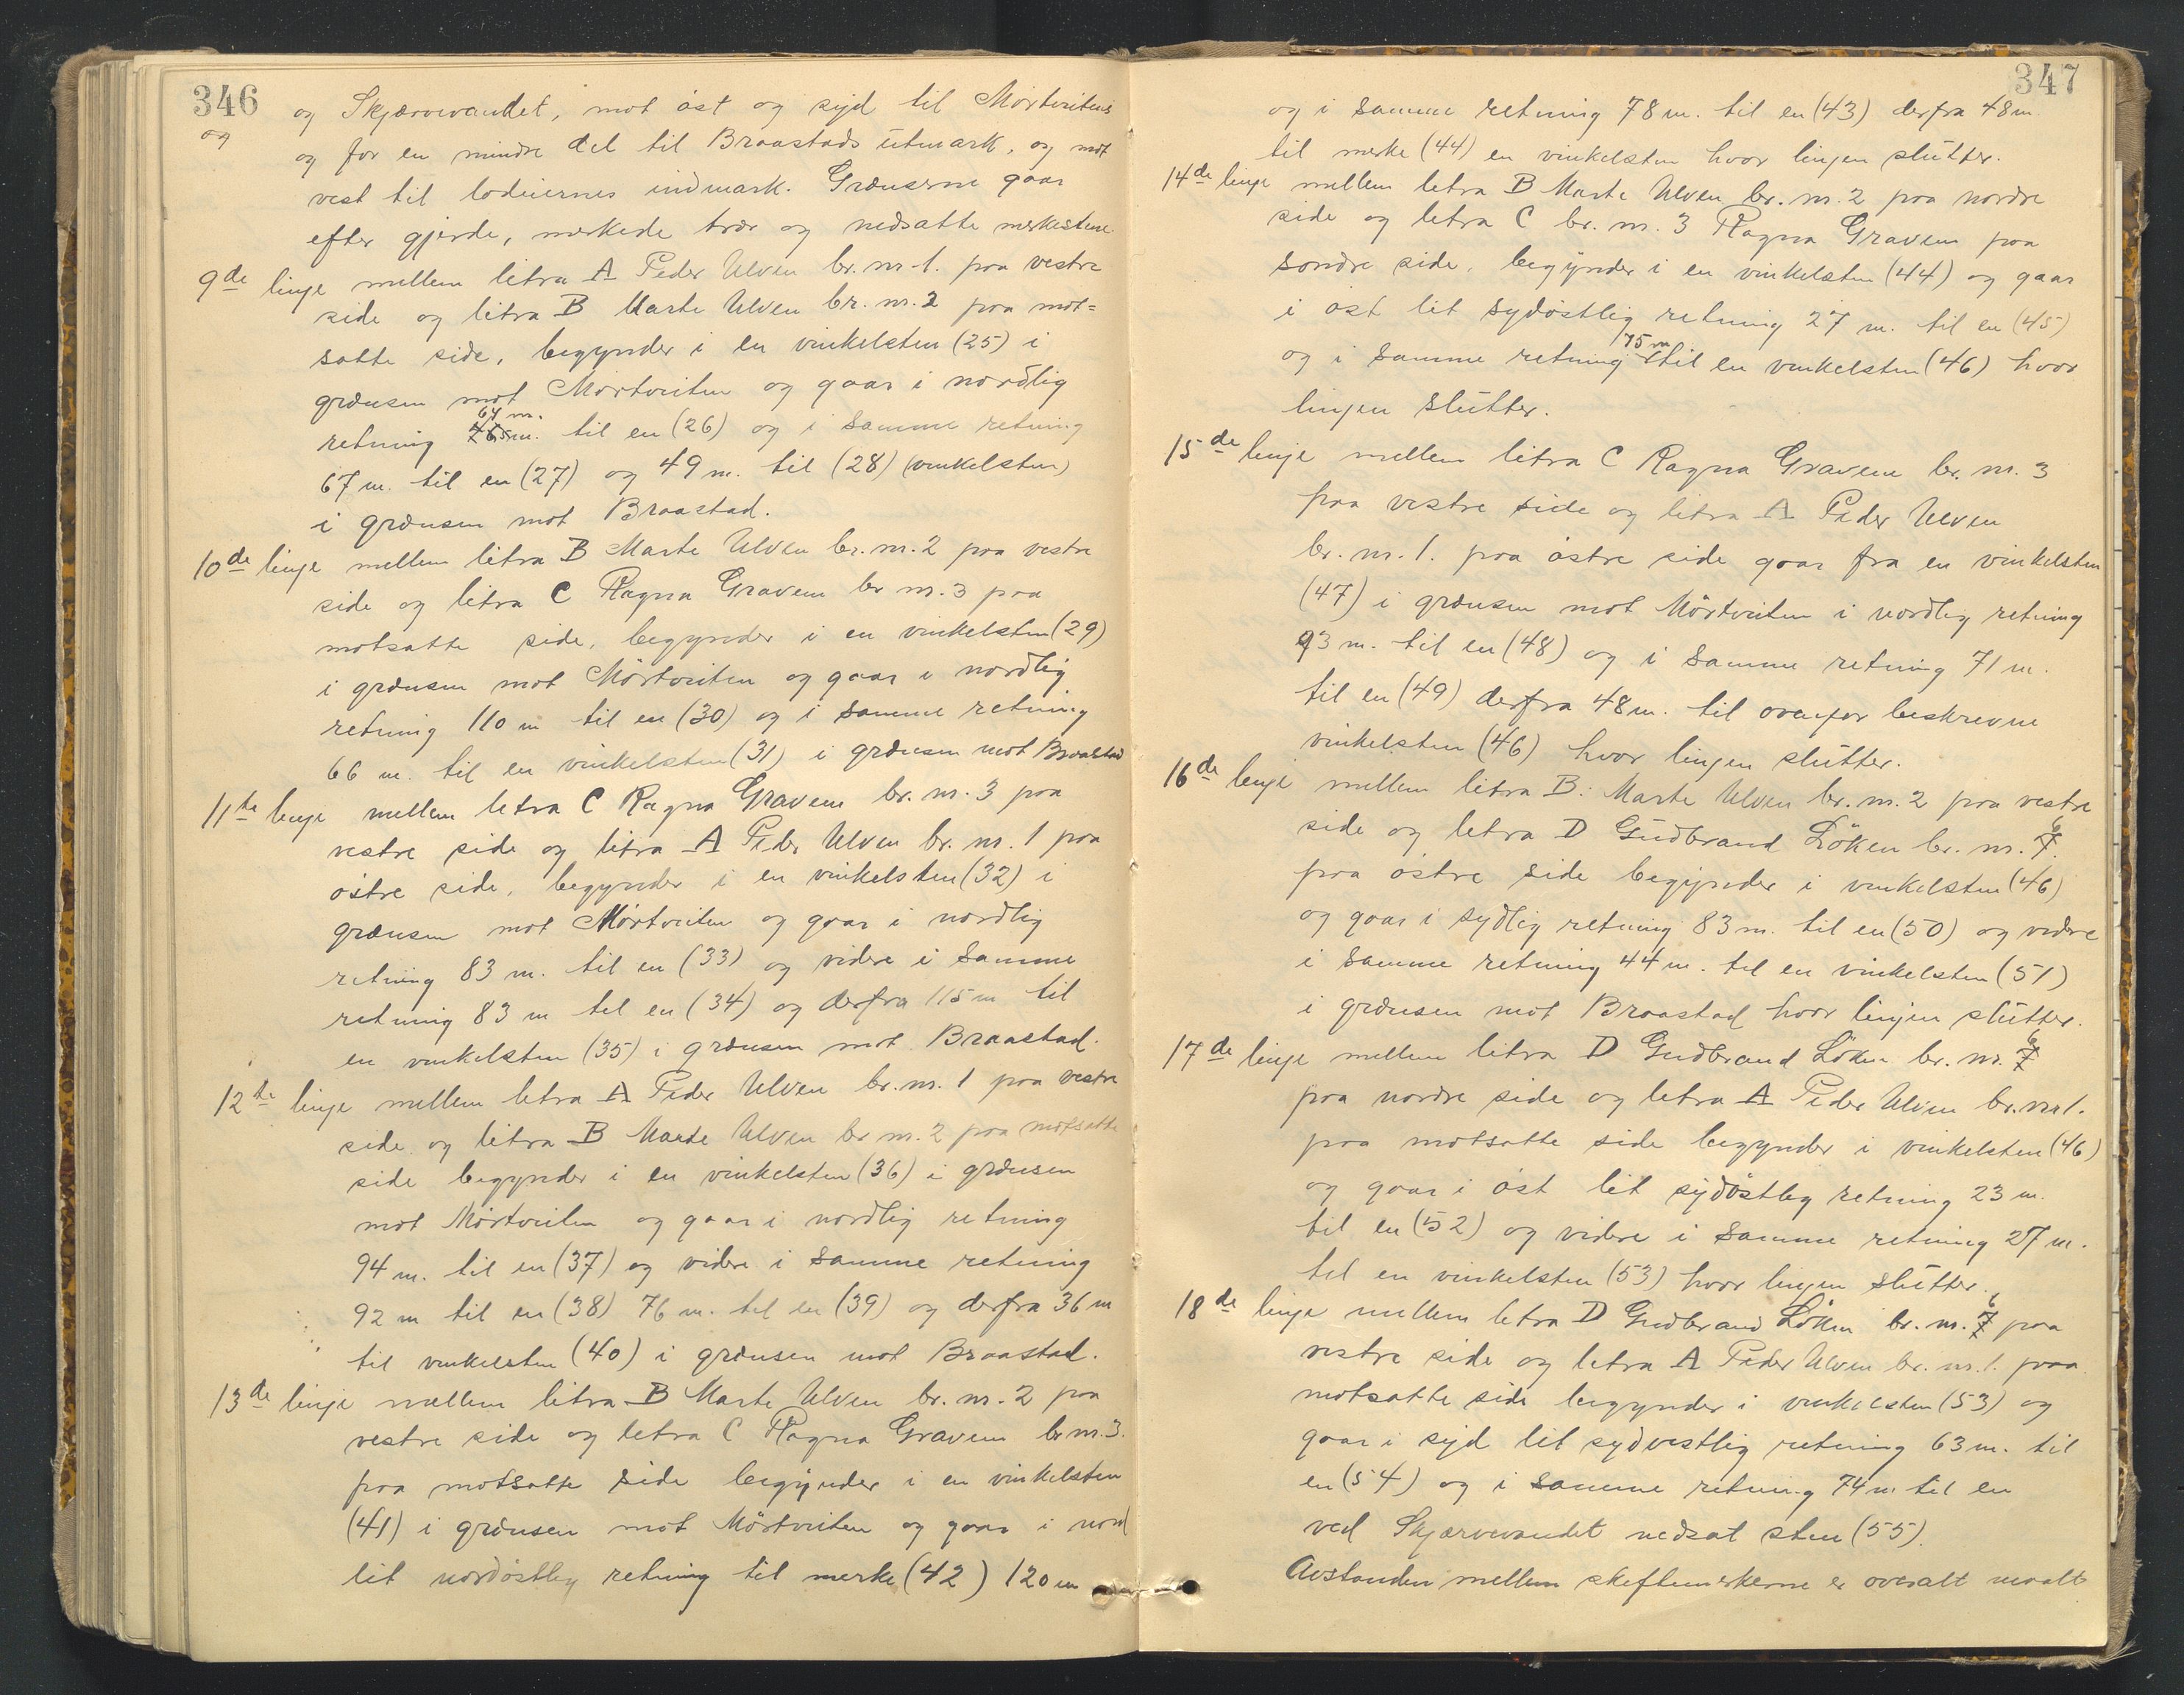 346
og Skjærvevandet, mot öst og syd til Mörtviten
og
og for en mindre del til Braastads utmark, og mot
vest til lodeiernes indmark. Grænserne gaar
efter gjerde, merkede trær og nedsatte merkestene.
9de linje mellem litra A Peder Ulven br. nr. 1. paa vestre
side og litra B Marte Ulven br. nr. 2 paa mot=
satte side, begynder i en vinkelsten (25) i
grænsen mot Mörtviten og gaar i nordlig
64 m.
retning til en (26) og i samme retning
67 m. til en (27) og 49 m. til (28) (vinkelsten)
i grænsen mot Braastad.
10de linje mellem litra B Marte Ulven br. nr. 2 paa vestre
side og litra C Ragna Gravem br nr. 3 paa
motsatte side, begynder i en vinkelsten (29)
i grænsen mot Mörtviten og gaar i nordlig
retning 110 m til en (30) og i samme retning
66 m. til en vinkelsten (31) i grænsen mot Braastad
11te linje mellem litra C Ragna Gravem br. nr. 3 paa
vestre side og litra A Peder Ulven br. nr. 1 paa
östre side, begynder i en vinkelsten (32) i
grænsen mot Mörtviten og gaar i nordlig
retning 83 m. til en (33) og videre i samme
retning 83 m til en (34) og derfra 115 m til
en vinkelsten (35) i grænsen mot Braastad.
12te linje mellem litra A Peder Ulven br. nr. 1 paa vestre
side og litra B Marte Ulven br nr. 2 paa motsatte
side begynder i en vinkelsten (36) i grænsen
mot Mörtviten og gaar i nordlig retning
94 m. til en (37) og videre i samme retning
92 m til en (38) 76 m. til en (39) og derfra 36 m
til vinkelsten (40) i grænsen mot Braastad.
13de linje mellem litra B Marte Ulven br. nr. 2 paa
vestre side og litra C Ragna Gravem br nr. 3.
paa motsatte side begynder i en vinkelsten
(41) i grænsen mot Mörtviten og gaar i nord
lit nordöstlig retning til merke (42) 120 m
347
og i samme retning 78 m. til en (43) derfra 48 m
til merke (44) en vinkelsten hvor linjen slutter.
14de linje mellem litra B Marte Ulven br. nr. 2 paa nordre
side og litra C br. nr. 3 Ragna Gravem paa
söndre side, begynder i en vinkelsten (44) og gaar
i öst lit sydöstlig retning 27 m. til en (45)
75 m
og i samme retning til en vinkelsten (46) hvor
linjen slutter.
15de linje mellem litra C Ragna Gravem br. nr. 3
paa vestre side og litra A Peder Ulven
br. nr. 1. paa östre side gaar fra en vinkelsten
(47) i grænsen mot Mörtviten i nordlig retning
93 m. til en (48) og i samme retning 71 m.
til en (49) derfra 48 m. til ovenfor beskrevne
vinkelsten (46) hvor linjen slutter.
16de linje mellem litra B. Marte Ulven br. nr. 2 paa vestre
6
side og litra D Gudbrand Löken br. nr. 7.
paa östre side begynder i vinkelsten (46)
og gaar i sydlig retning 83 m. til en (50) og videre
i samme retning 44 m. til en vinkelsten (51)
i grænsen mot Braastad hvor linjen slutter.
6
17de linje mellem litra D Gudbrand Löken br. nr. 7
paa nordre side og litra A Peder Ulven br. nr 1.
paa motsatte side begynder i vinkelsten (46)
og gaar i öst lit sydöstlig retning 23 m.
til en (52) og videre i samme retning 27 m.
til en vinkelsten (53) hvor linjen slutter.
6
18de linje mellem litra D Gudbrand Löken br. nr. 7 paa
vestre side og litra A Peder Ulven br. nr. 1. paa
motsatte side begynder i vinkelsten (53) og
gaar i syd lit sydvestlig retning 63 m. til
en (54) og i samme retning 74 m til en
ved Skjærvevandet nedsat sten (55).
Avstanden mellem skiftemerkerne er overalt maalt